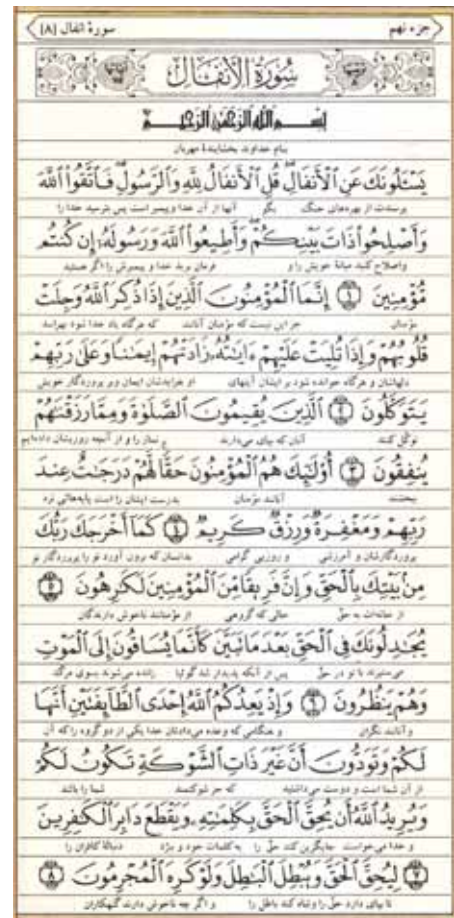 جزء نهم
سورة انفال [۸]
سُورَةُ الأَنْفَال
بِسْمِ اللَّهِ الرَّحْمَٰنِ الرَّحِيمِ
بنام خداوند بخشایندهٔ مهربان
يَسْـَٔلُونَكَ عَنِ ٱلْأَنفَالِ قُلِ ٱلْأَنفَالُ لِلَّهِ وَٱلرَّسُولِ فَٱتَّقُوا۟ ٱللَّهَ
پرسندت از بهره‌های جنگ بگو آنها از آن خدا و پیمبر است پس بترسید خدا را
وَأَصْلِحُوا۟ ذَاتَ بَيْنِكُمْ وَأَطِيعُوا۟ ٱللَّهَ وَرَسُولَهُۥٓ إِن كُنتُم
واصلاح کنید میانهٔ خویش را و فرمان برید خدا و پیمبرش را اگر هستید
مُّؤْمِنِينَ ﴿۱﴾ إِنَّمَا ٱلْمُؤْمِنُونَ ٱلَّذِينَ إِذَا ذُكِرَ ٱللَّهُ وَجِلَتْ
مؤمنان جز این نیست که مؤمنان آنانند که هرگاه یاد خدا شود بهراسد
قُلُوبُهُمْ وَإِذَا تُلِيَتْ عَلَيْهِمْ ءَايَٰتُهُۥ زَادَتْهُمْ إِيمَٰنًا وَعَلَىٰ رَبِّهِمْ
دلهاشان و هرگاه خوانده شود بر ایشان آیتهای او بیفزایدشان ایمان وبر پروردگار خویش
يَتَوَكَّلُونَ ﴿۲﴾ ٱلَّذِينَ يُقِيمُونَ ٱلصَّلَوٰةَ وَمِمَّا رَزَقْنَٰهُمْ
توکّل کنند آنان که بپای می‌دارند نماز را و از آنچه روزیشان داده‌ایم
يُنفِقُونَ ﴿۳﴾ أُو۟لَٰٓئِكَ هُمُ ٱلْمُؤْمِنُونَ حَقًّا لَّهُمْ دَرَجَٰتٌ عِندَ
ببخشند آنانند مؤمنان بدرست ایشان را است پایه‌هائی نزد
رَبِّهِمْ وَمَغْفِرَةٌ وَرِزْقٌ كَرِيمٌ ﴿۴﴾ كَمَآ أَخْرَجَكَ رَبُّكَ
پروردگارشان و آمرزشی و روزیی گرامی بدانسان که برون آورد تو را پروردگار تو
مِنۢ بَيْتِكَ بِٱلْحَقِّ وَإِنَّ فَرِيقًا مِّنَ ٱلْمُؤْمِنِينَ لَكَٰرِهُونَ ﴿۵﴾
از خانه‌ات به حقّ حالی که گروهی از مؤمنانند ناخوش دارندگان
يُجَٰدِلُونَكَ فِى ٱلْحَقِّ بَعْدَ مَا تَبَيَّنَ كَأَنَّمَا يُسَاقُونَ إِلَى ٱلْمَوْتِ
می‌ستیزند با تو در حقّ پس از آنکه پدیدار شد گوئیا رانده می‌شوند بسوی مرگ
وَهُمْ يَنظُرُونَ ﴿۶﴾ وَإِذْ يَعِدُكُمُ ٱللَّهُ إِحْدَى ٱلطَّآئِفَتَيْنِ أَنَّهَا
و آنانند نگران و هنگامی که وعده می‌دادتان خدا یکی از دو گروه را که آن
لَكُمْ وَتَوَدُّونَ أَنَّ غَيْرَ ذَاتِ ٱلشَّوْكَةِ تَكُونُ لَكُمْ
از آن شما است و دوست می‌داشتید که جز شوکتمند شما را باشد
وَيُرِيدُ ٱللَّهُ أَن يُحِقَّ ٱلْحَقَّ بِكَلِمَٰتِهِۦ وَيَقْطَعَ دَابِرَ ٱلْكَٰفِرِينَ
و خدا می‌خواست جایگزین کند حقّ را به کلمات خود و ببرّد دنبالهٔ کافران را
﴿۷﴾ لِيُحِقَّ ٱلْحَقَّ وَيُبْطِلَ ٱلْبَٰطِلَ وَلَوْ كَرِهَ ٱلْمُجْرِمُونَ ﴿۸﴾
تا بپای دارد حقّ را و تباه کند باطل را و اگر چه ناخوش دارند گنهکاران